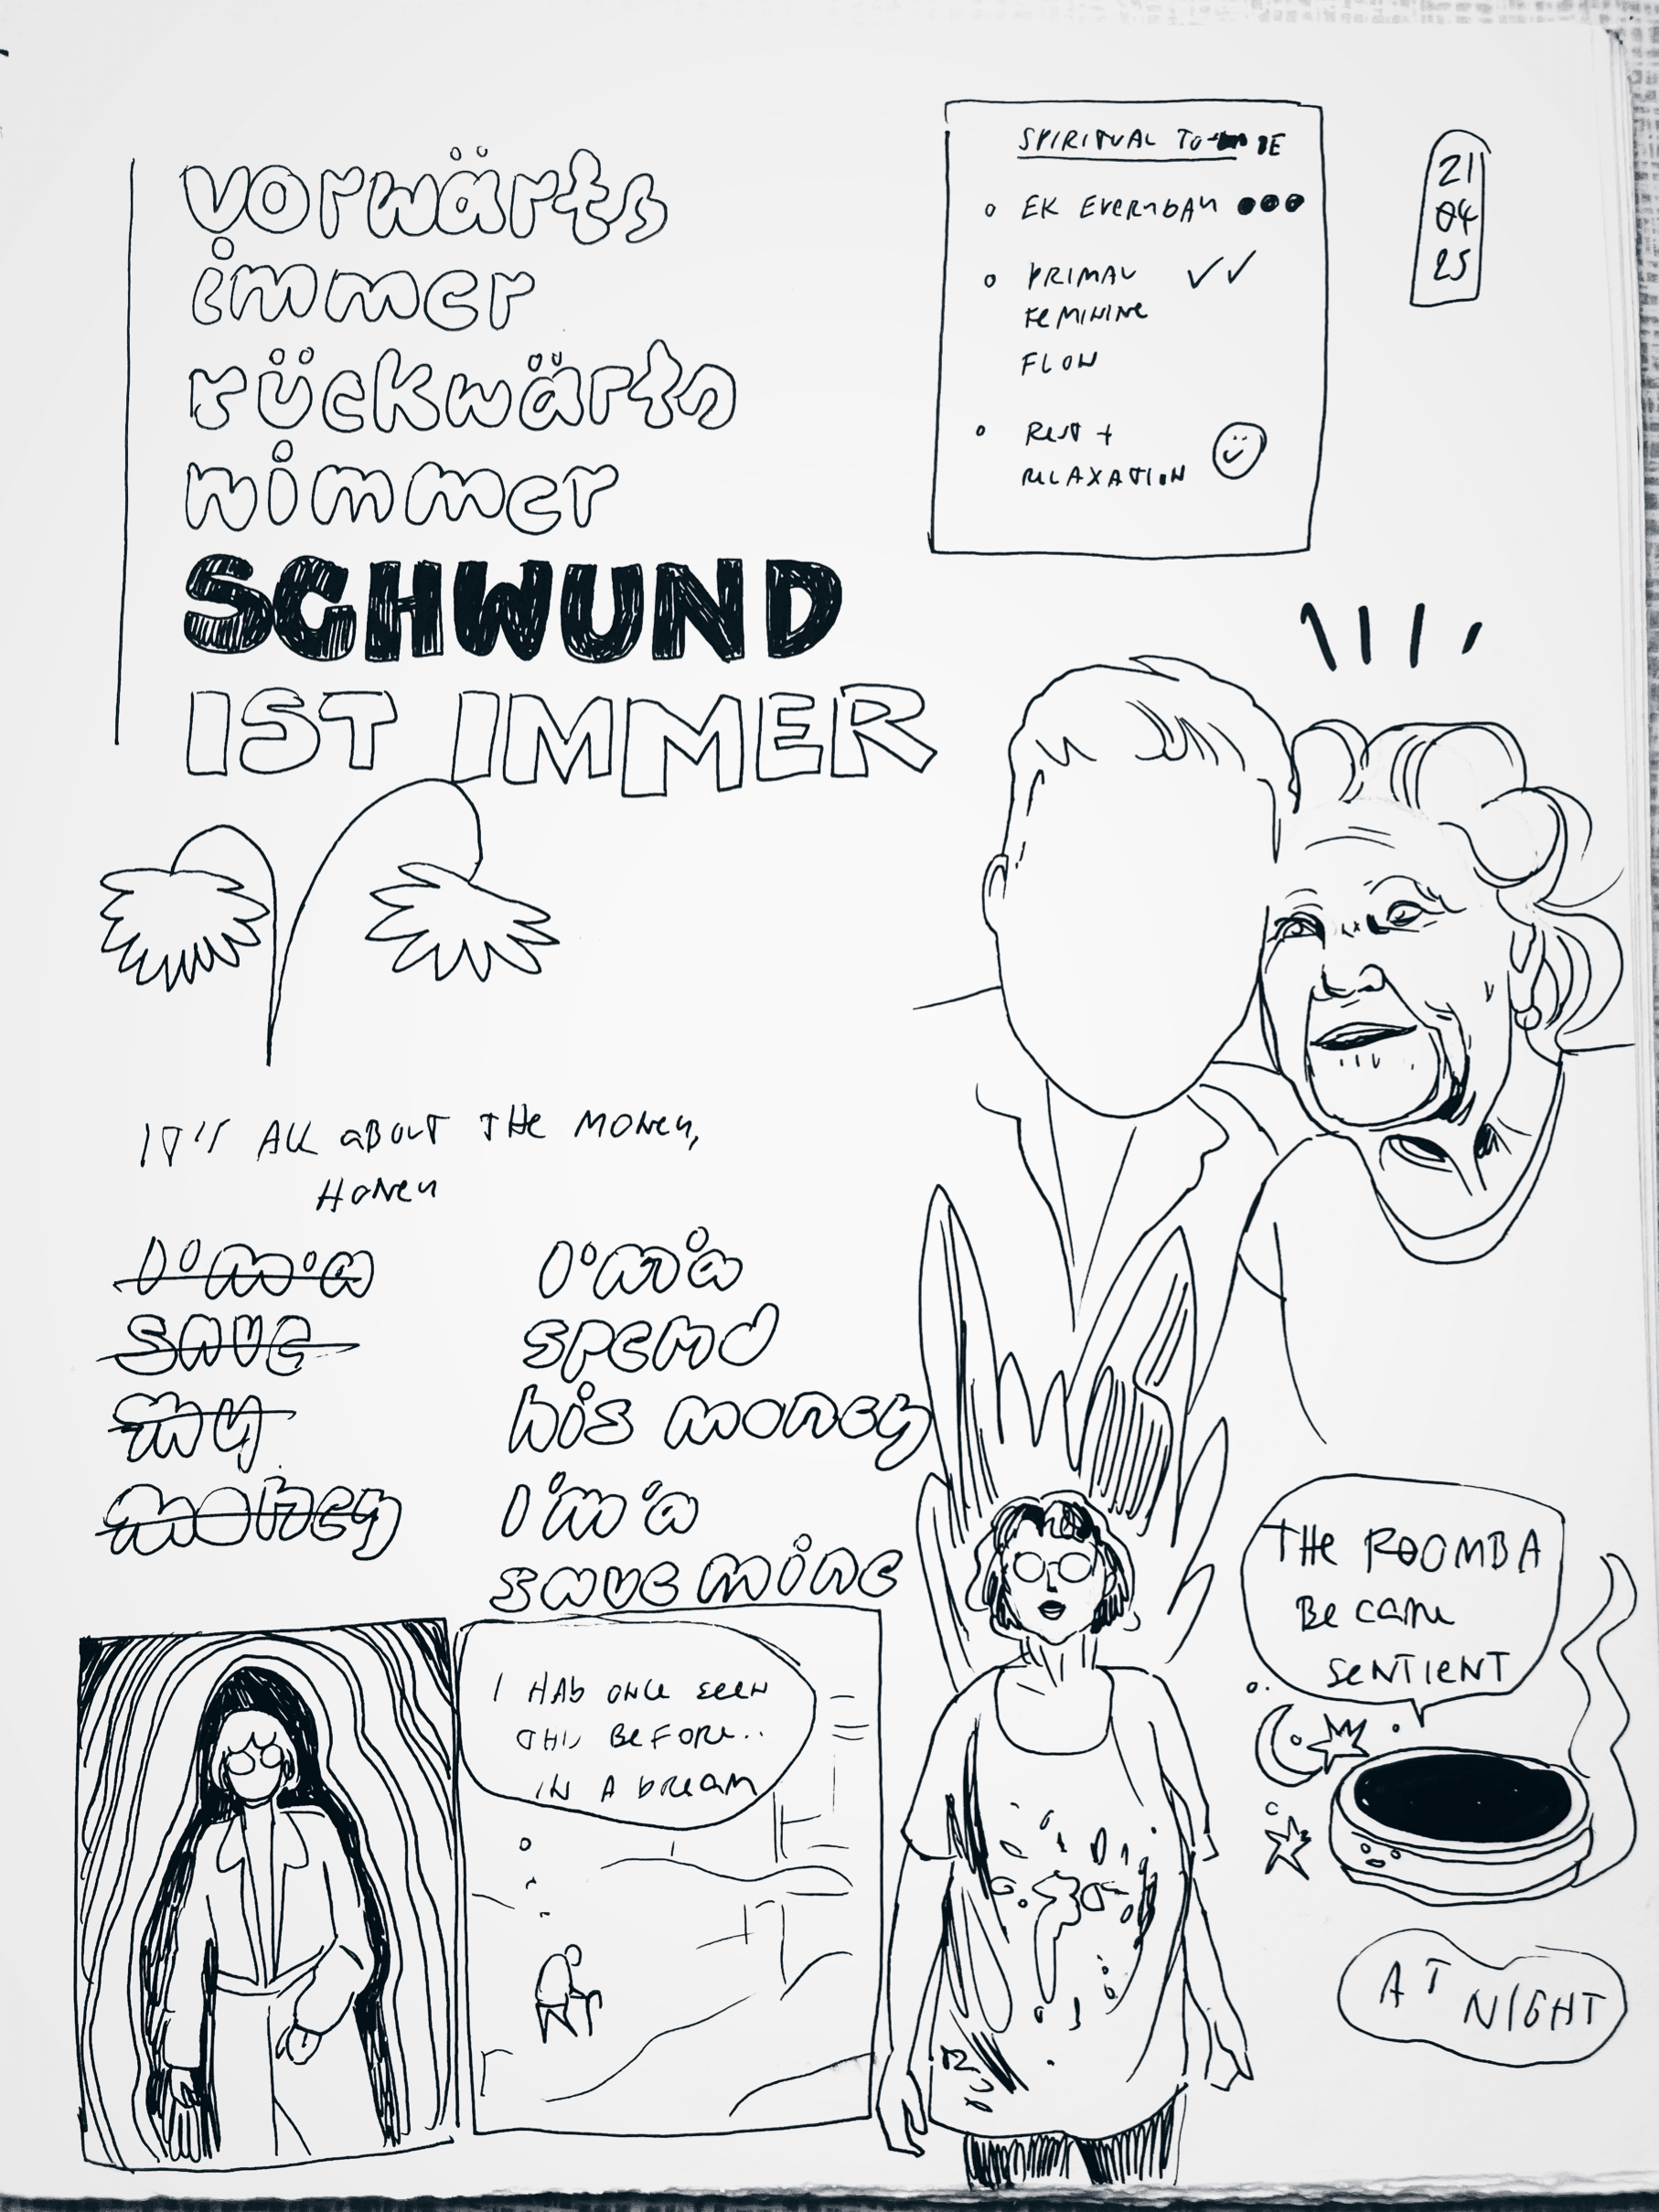 vorwärts
immer
rückwärts
nimmer
SCHWUND
IST IMMER
SPIRITUAL TO BE
EK EVERYDAY
PRIMAL
FEMININE
FLOW
REST +
RELAXATION
21
04
25
IT'S ALL ABOUT THE MONEY,
HONEY
I'm'a
save
my
money
I'm'a
spend
his money
I'm'a
save mine
I HAD ONCE SEEN
THIS BEFORE..
IN A DREAM
THE ROOMBA
BECAME
SENTIENT
AT NIGHT